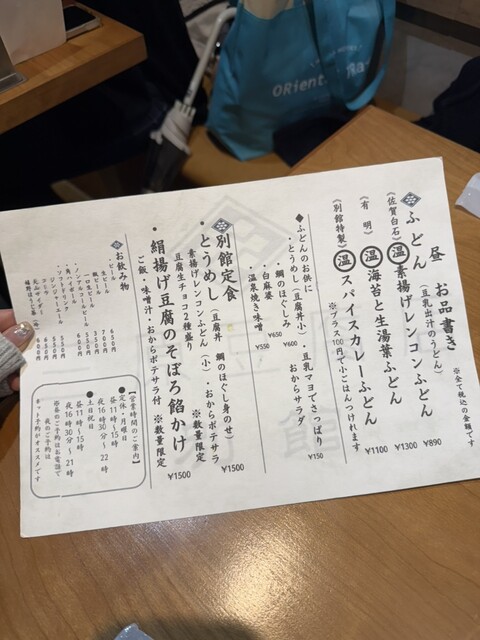 昼 お品書き
※全て税込の金額です
ふどん(豆乳出汁のうどん)
(佐賀白石) 温 素揚げレンコンふどん ¥890
(有明) 温 海苔と生湯葉ふどん ¥1300
(別館特製) 温 スパイスカレーふどん ¥1100
※プラス100円で小ごはんつけれます
◆ふどんのお供に
・とうめし(豆腐丼小) ¥600
・鯛のほぐしみ ¥650
・白麻婆
・温泉焼き味噌 ¥550
・豆乳マヨでさっぱり
おからサラダ ¥150
別館定食
・とうめし(豆腐丼 鯛のほぐし身のせ) ¥1500
素揚げレンコンふどん(小)・おからポテサラ
豆腐生チョコ2種盛り ※数量限定
・絹揚げ豆腐のそぼろ餡かけ ¥1500
ご飯・味噌汁・おからポテサラ付 ※数量限定
お飲み物
・ビール
生ビール
一口生ビール
瓶ビール
・ノンアルコールビール
・ハイボール
・ソフトドリンク
ジンジャーエール
コーラ
【営業時間のご案内】
●定休・月曜日
昼11時〜15時
夜16時30分〜22時
●土日祝日
昼11時〜15時
夜16時30分〜21時
※昼のご予約はお電話で
夜のご予約は
ネット予約がオススメです
ORient